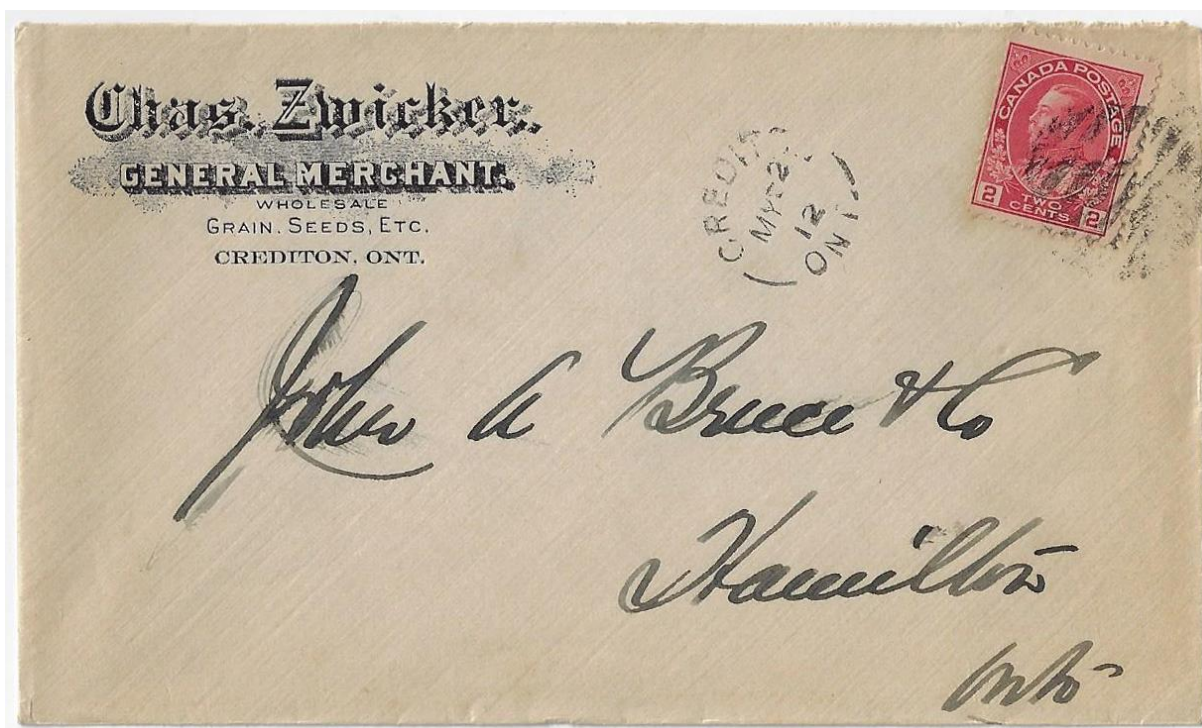 Chas. Zwicker.
GENERAL MERCHANT.
WHOLESALE
GRAIN. SEEDS, ETC.
CREDITON. ONT.
CREDIT
MY 2
12
ONT
CANADA POSTAGE
2 TWO CENTS 2
John A Bruce & Co
Hamilton
Ont